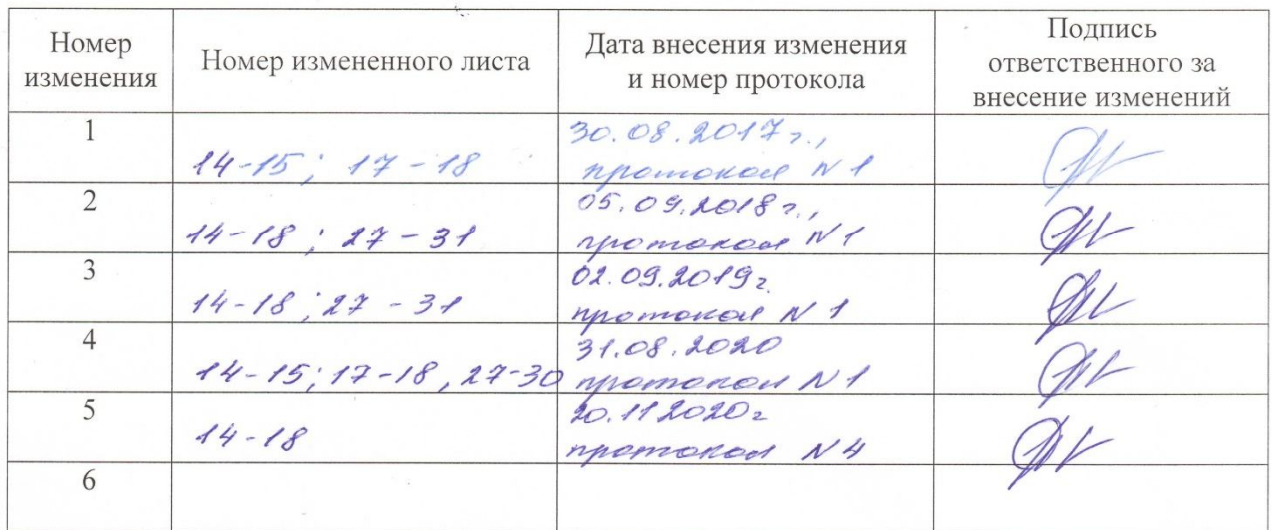 Номер изменения
Номер измененного листа
Дата внесения изменения и номер протокола
Подпись ответственного за внесение изменений
1
14-15; 17-18
30.08.2017г.,
протокол N1
2
14-18; 27-31
05.09.2018г.,
протокол N1
3
14-18; 27-31
02.09.2019г.
протокол N1
4
14-15; 17-18, 27-30
31.08.2020
протокол N1
5
14-18
20.11.2020г
протокол N4
6